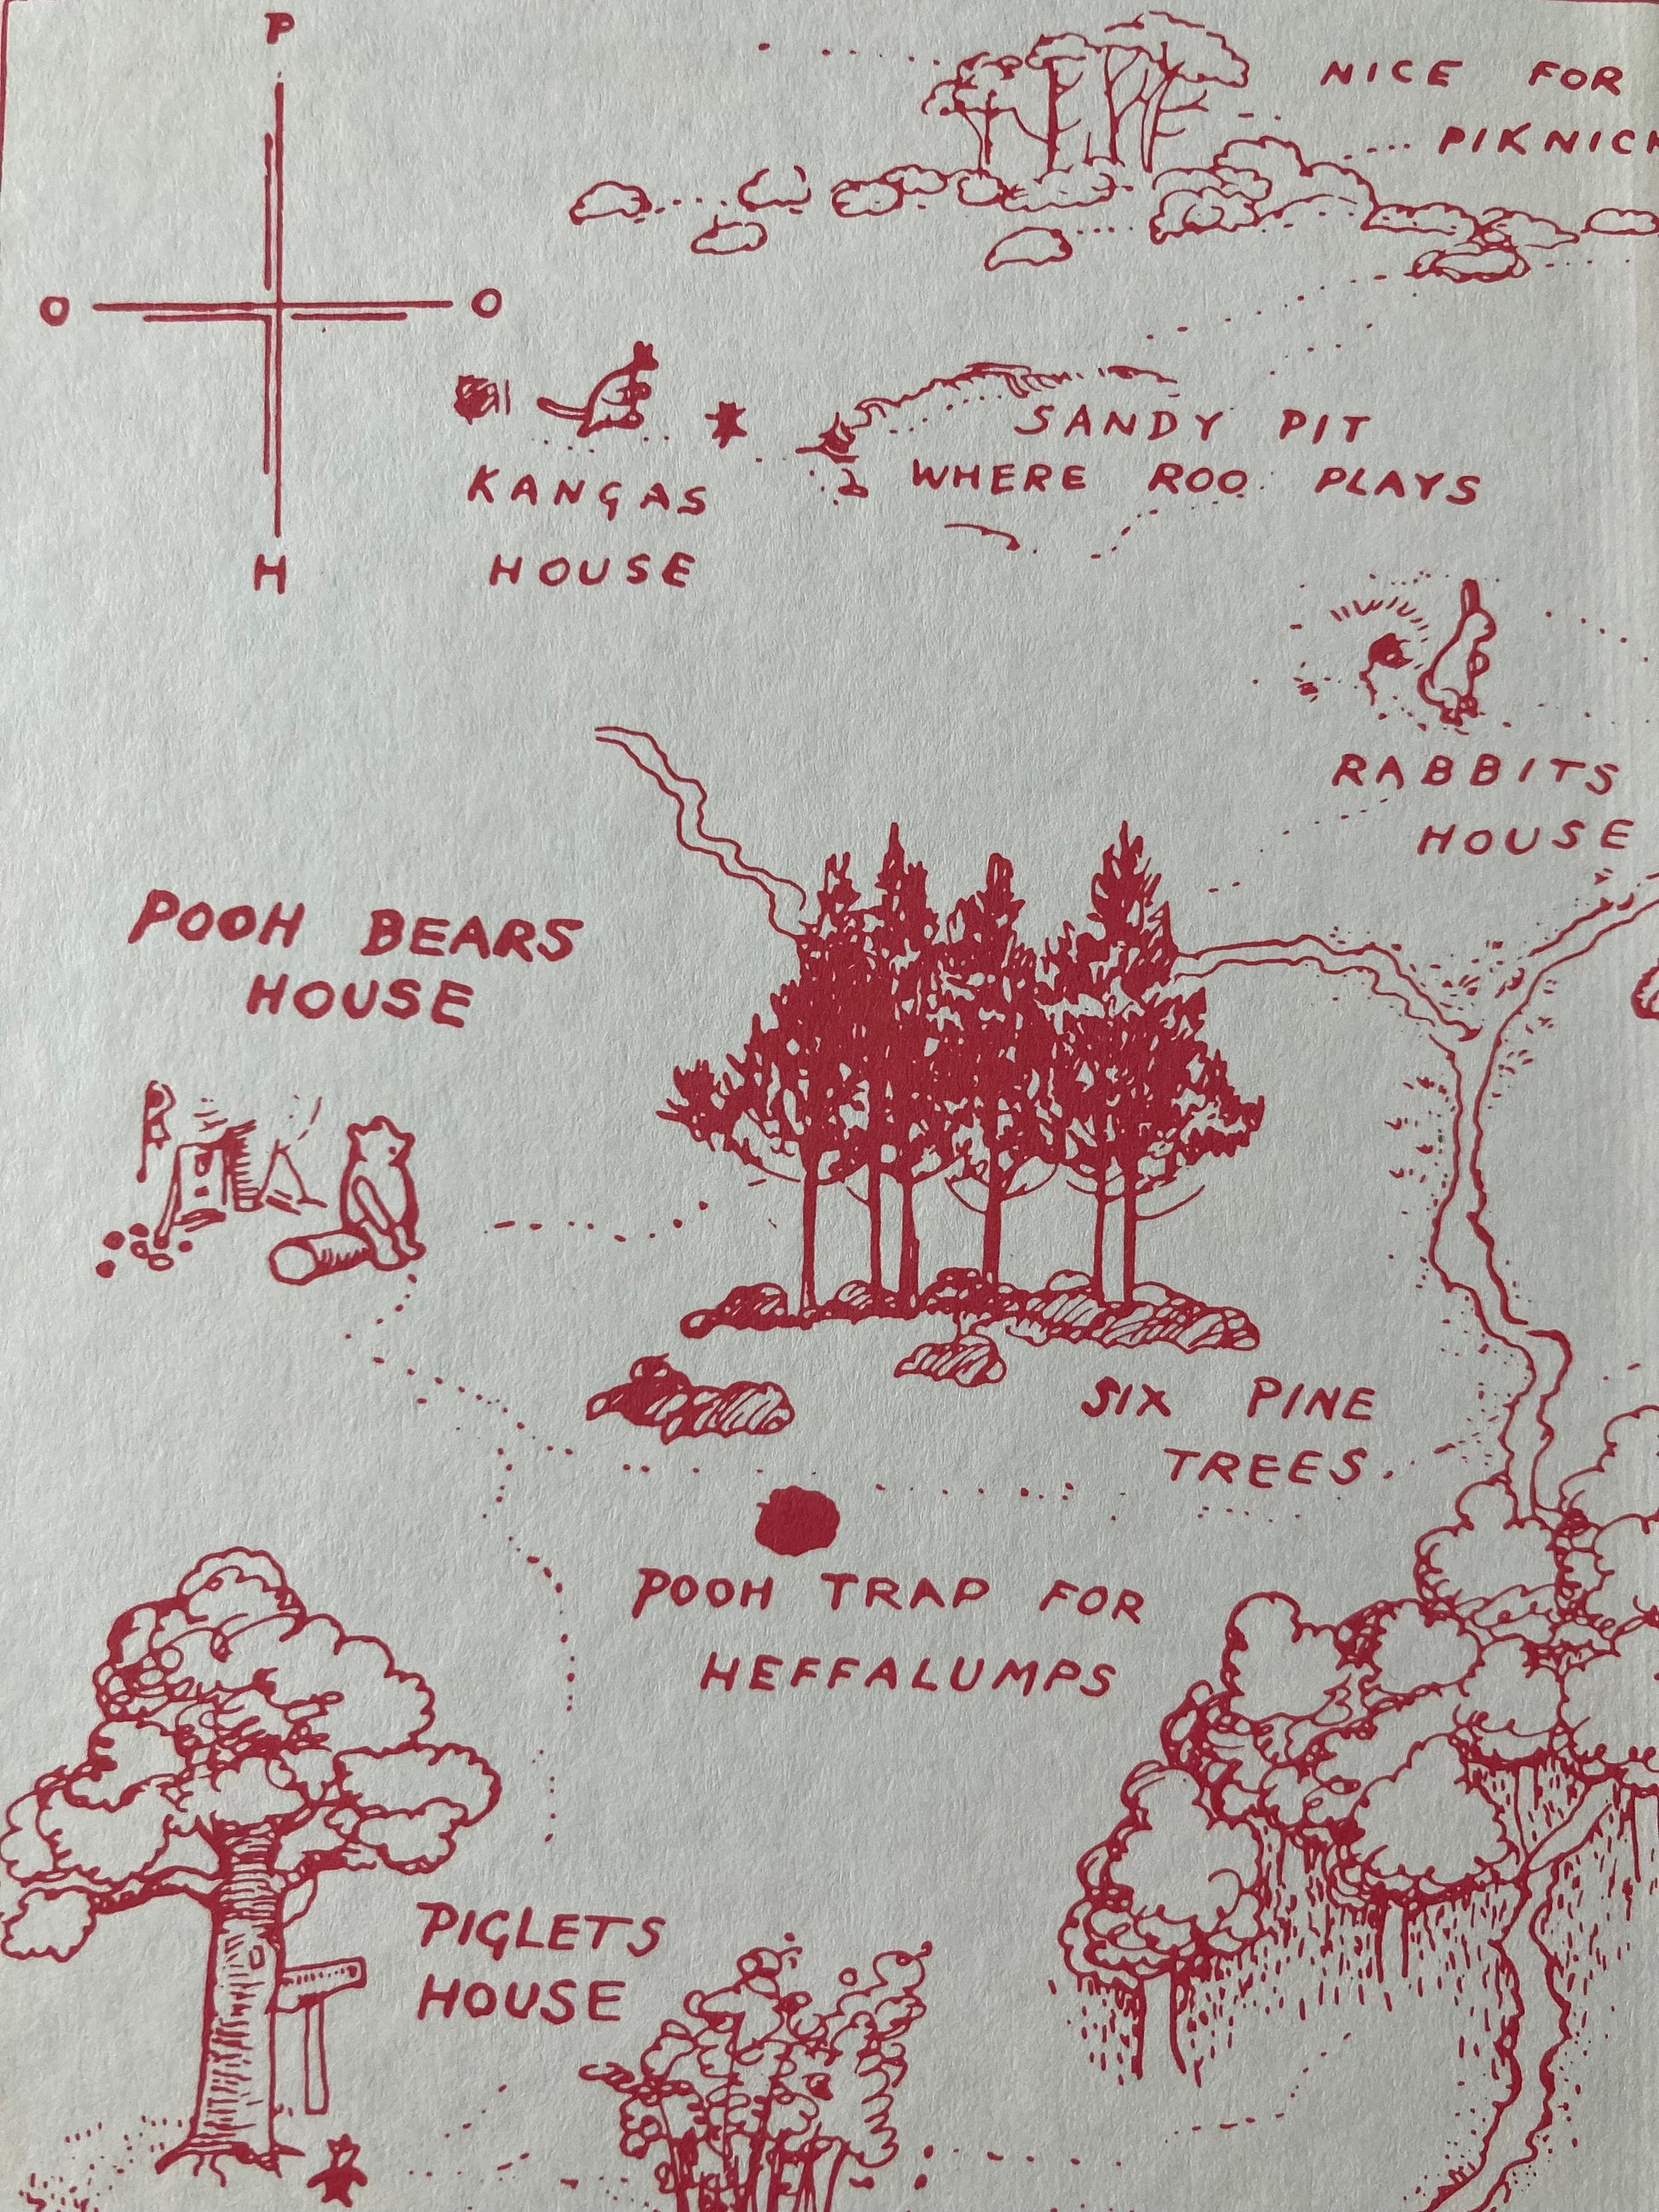 P
NICE FOR
O O
H
SANDY PIT
WHERE ROO PLAYS
KANGAS
HOUSE
RABBITS
HOUSE
POOH BEARS
HOUSE
SIX PINE
TREES
POOH TRAP FOR
HEFFALUMPS
PIGLETS
HOUSE